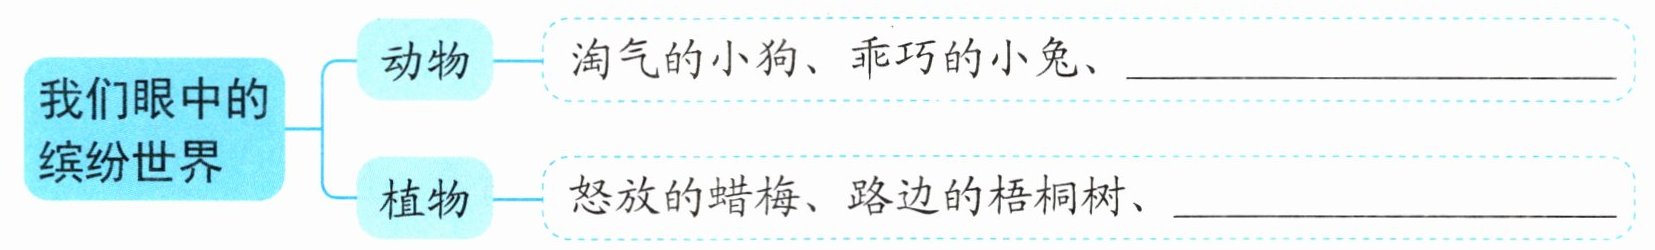 我们眼中的
缤纷世界
动物
淘气的小狗、乖巧的小兔、
植物
怒放的蜡梅、路边的梧桐树、